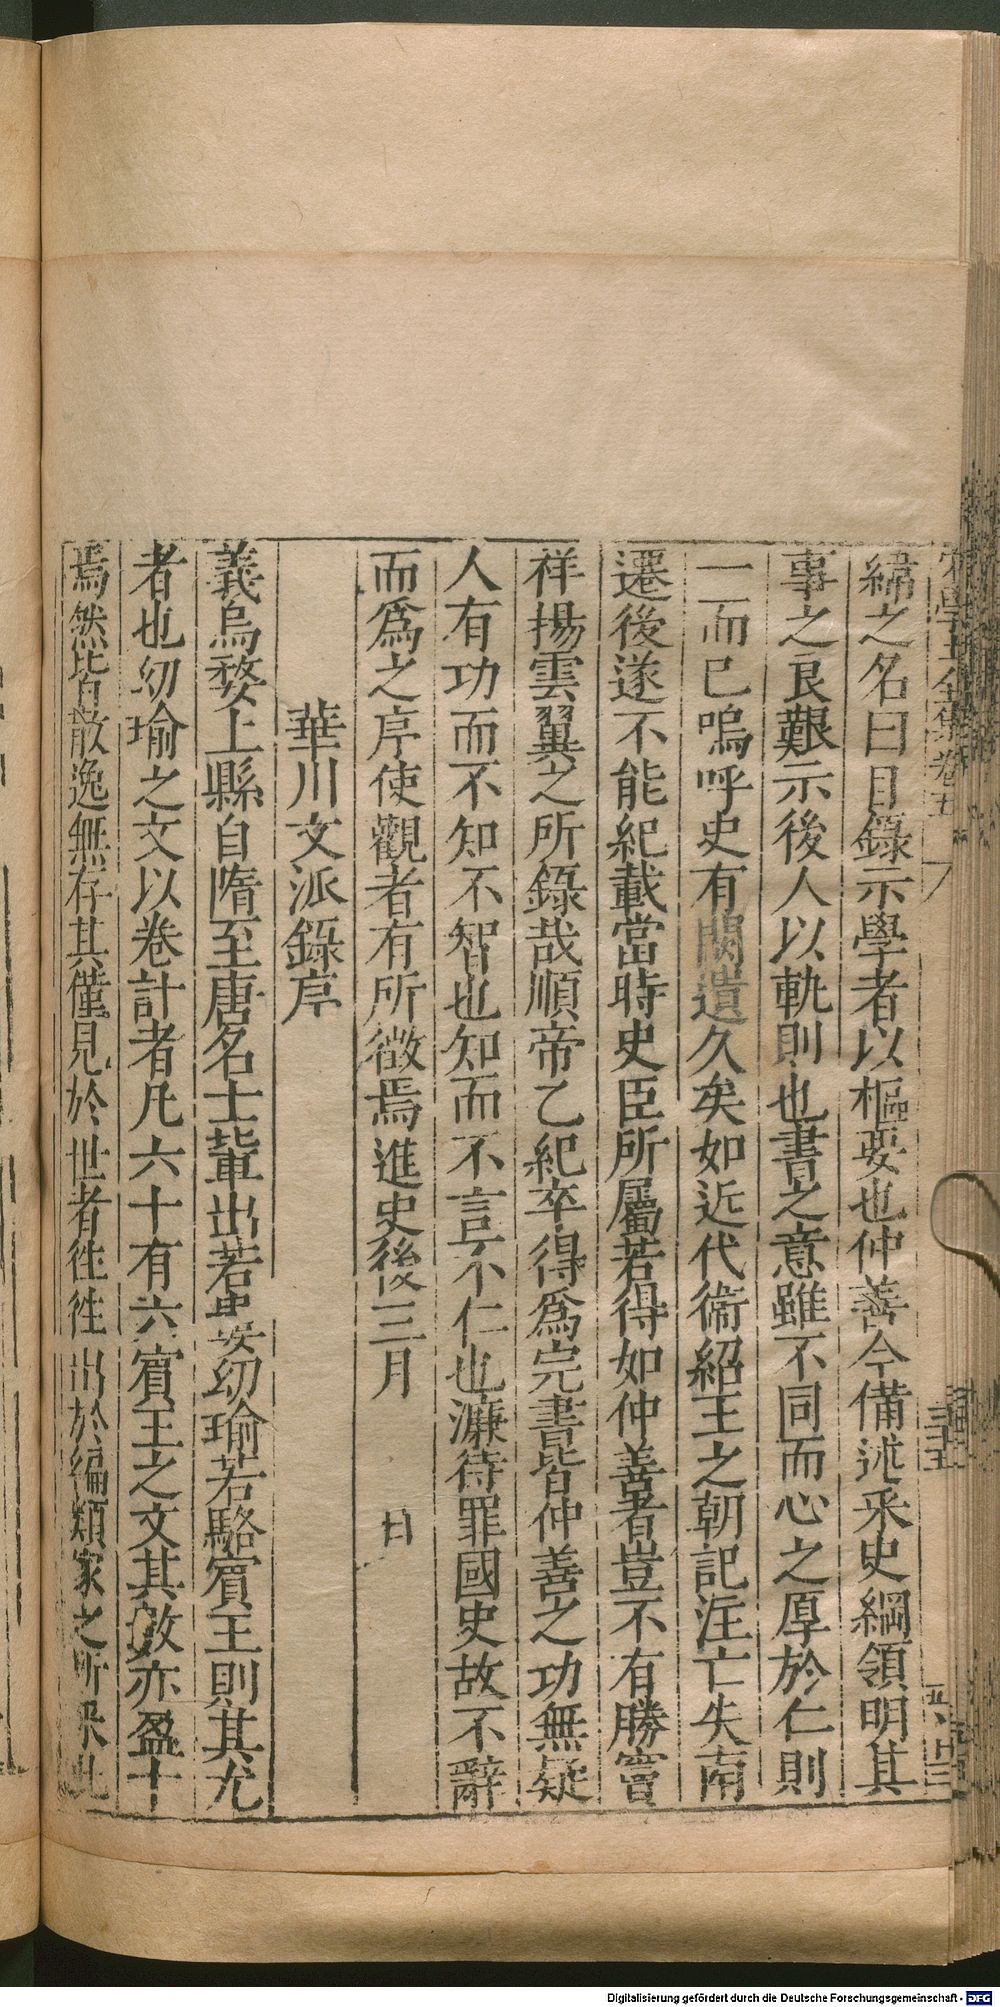 綿之名曰目錄示學者以樞要也仲善今備述采史綱領明其
事之艮艱示後人以軌則也書之意雖不同而心之厚於仁則
一而已嗚呼史有闕遺久矣如近代衛紹王之朝記注亡失南
遷後遂不能紀載當時史臣所屬若得如仲善者豈不有勝竇
祥揚雲翼之所錄哉順帝乙紀卒得為完書皆仲善之功無疑
人有功而不知不智也知而不言不仁也濂待罪國史故不辭
而為之序使觀者有所徵焉進史後三月 日
華川文派錄序
義烏婺上縣自隋至唐名士輩出若婁幼瑜若駱賓王則其尤
者也幼瑜之文以卷計者凡六十有六賓王之文其數亦盈十
焉然皆散逸無存其僅見於世者徃徃出於編類家之所采此
宋學士全集卷五
三十五
Digitalisierung gefördert durch die Deutsche Forschungsgemeinschaft - DFG